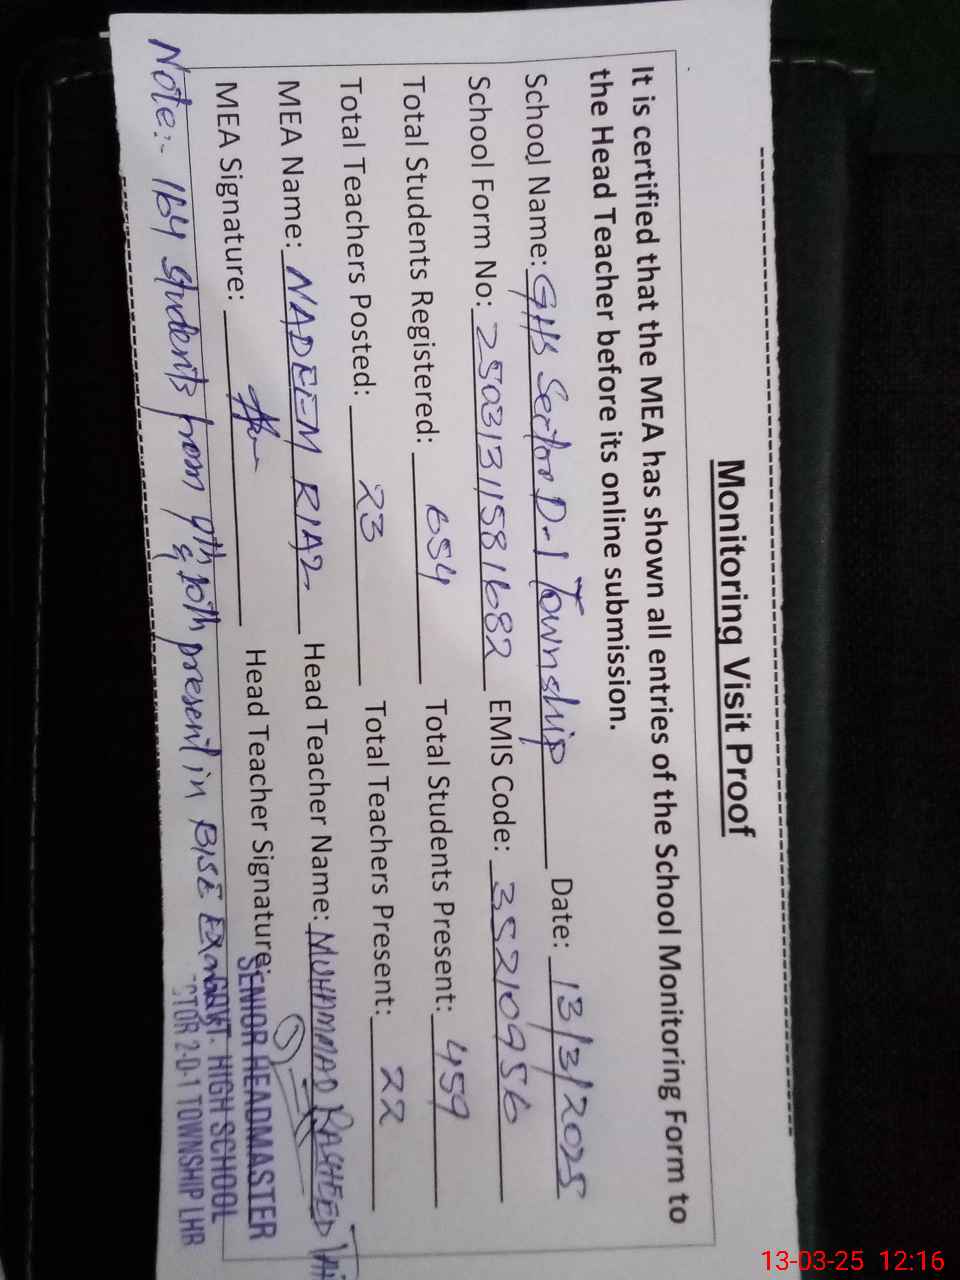 Monitoring Visit Proof
It is certified that the MEA has shown all entries of the School Monitoring Form to
the Head Teacher before its online submission.
School Name: GHS Sector D-1 Township Date: 13/3/2025
School Form No: 2503131581682 EMIS Code: 35210956
Total Students Registered: 654 Total Students Present: 459
Total Teachers Posted: 23 Total Teachers Present: 22
MEA Name: NADEEM RIAZ Head Teacher Name: MUHAMMAD RASHEED
MEA Signature: Head Teacher Signature:
SENIOR HEADMASTER
GOVT. HIGH SCHOOL
CTOR 2-D-1 TOWNSHIP LHR
Note:- 164 students from 9th & 10th present in BISE Exam
13-03-25 12:16